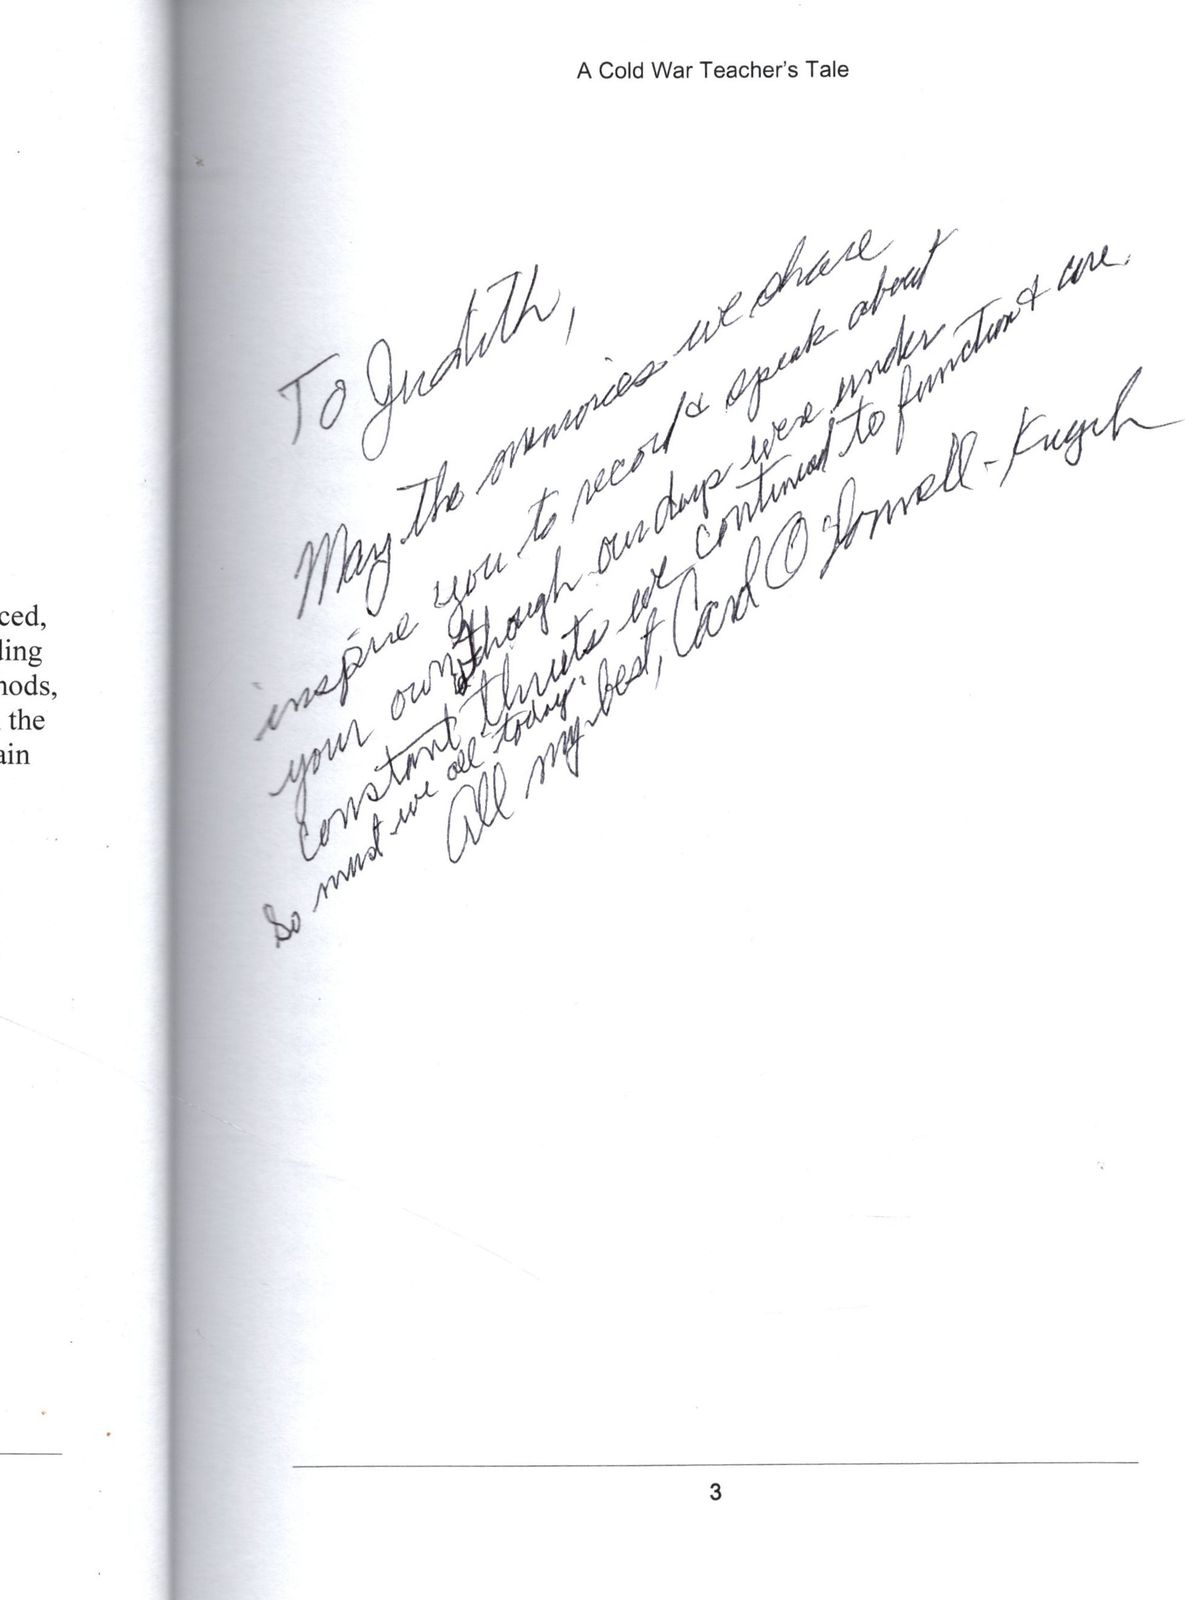 A Cold War Teacher's Tale
ced,
ling
nods,
the
ain
To Judith,
May the memories we share
inspire you to record & speak about
your own though our days were under
constant threats we continued to function & care.
So must we all today.
All my best, Carol O'Donnell-
3